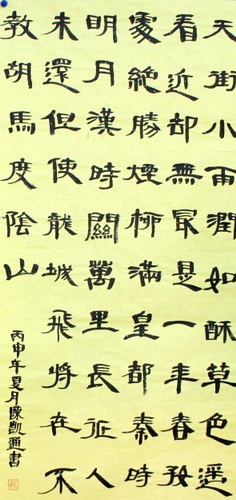 天街小雨潤如酥草色遥
看近却無最是一年春好
處絶勝煙柳滿皇都秦時
明月漢時關萬里長征人
未還但使龍城飛將在不
教胡馬度陰山
丙申年夏月陳凱通書